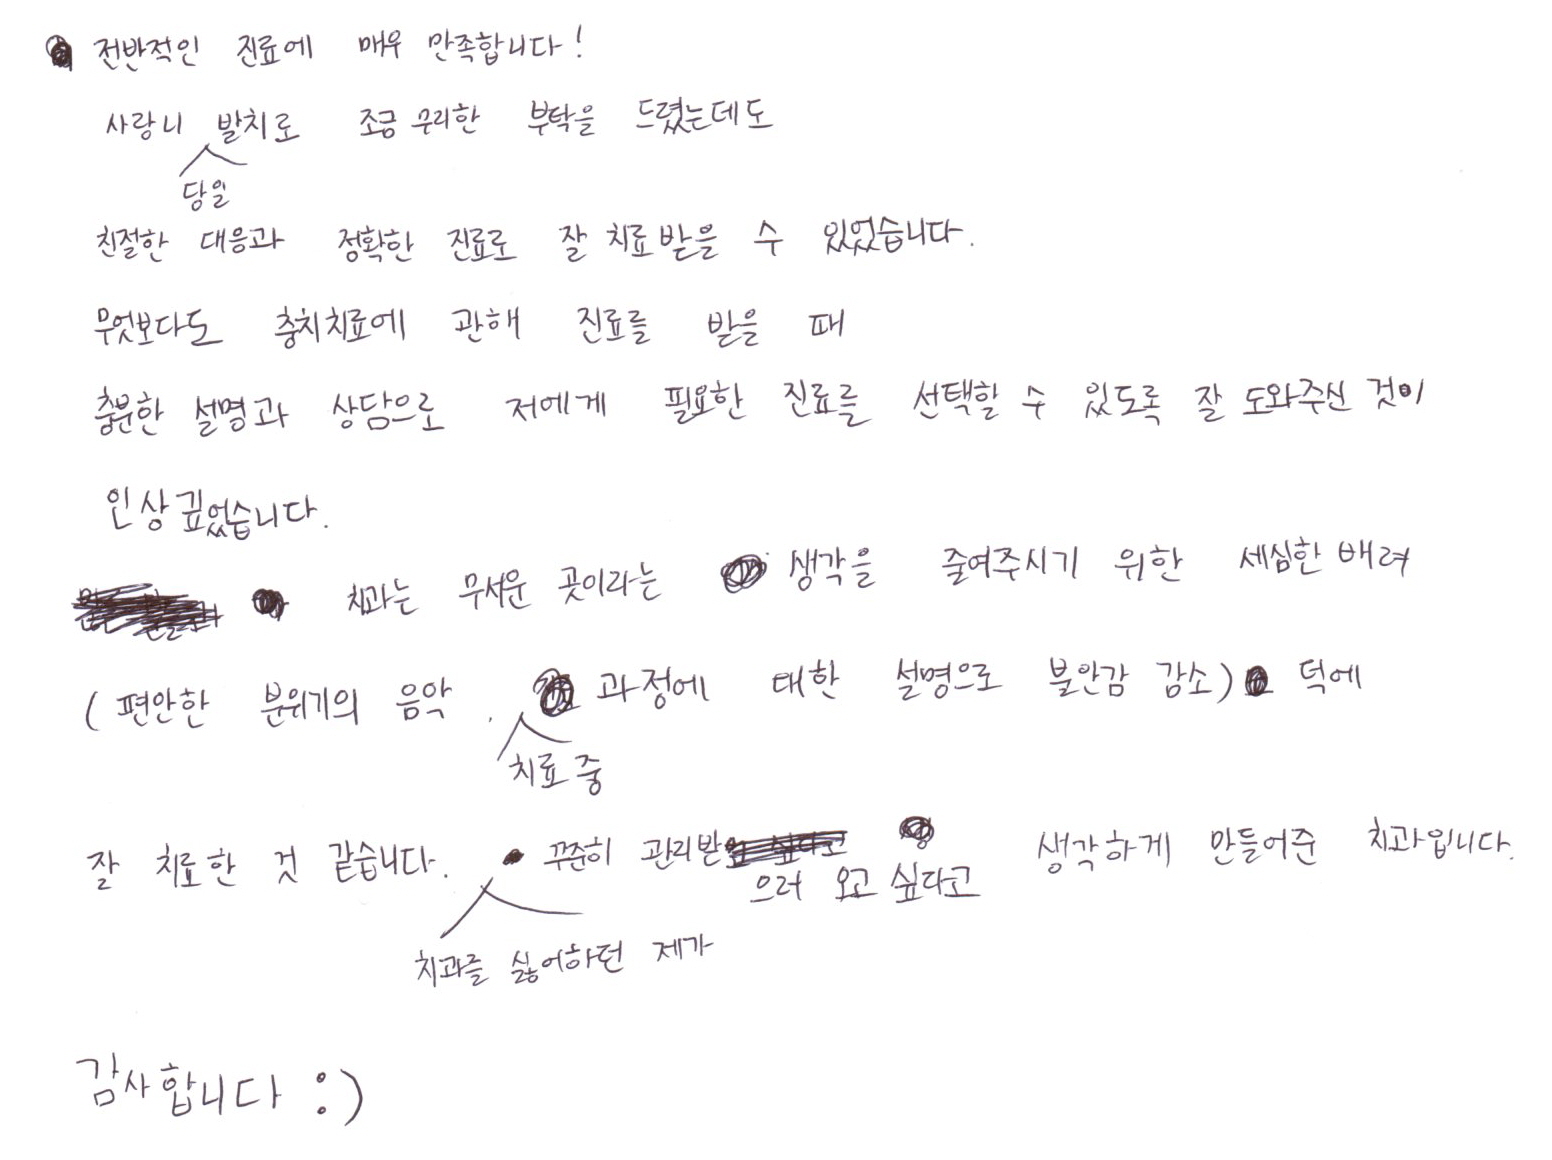 전반적인 진료에 매우 만족합니다!
사랑니 당일 발치로 조금 무리한 부탁을 드렸는데도
친절한 대응과 정확한 진료로 잘 치료받을 수 있었습니다.
무엇보다도 충치치료에 관해 진료를 받을 때
충분한 설명과 상담으로 저에게 필요한 진료를 선택할 수 있도록 잘 도와주신 것이
인상깊었습니다.
치과는 무서운 곳이라는 생각을 줄여주시기 위한 세심한 배려
(편안한 분위기의 음악, 치료 중 과정에 대한 설명으로 불안감 감소) 덕에
잘 치료한 것 같습니다. 치과를 싫어하던 제가 꾸준히 관리받으러 오고 싶다고 생각하게 만들어준 치과입니다.
감사합니다 :)